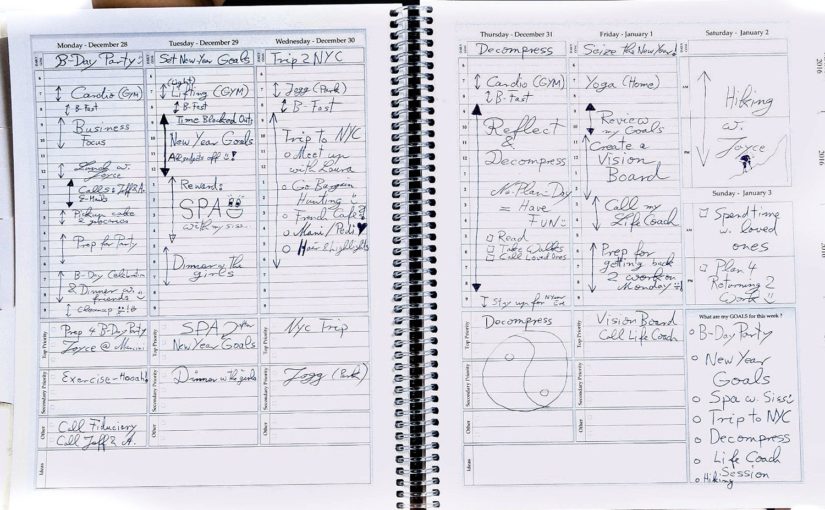 Monday - December 28
B-Day Party :)
7
Cardio (GYM)
8
B-Fast
9
Business
Focus
10
11
12
Lunch w.
Joyce
1
Calls: Jeff & A.
2
E-Mails
3
Pick up cake
4
5
Prep for Party
6
7
B-Day Celebration
8
& Dinner w.
friends
9
Cleanup
Top Priority
Prep 4 B-Day Party
Joyce @
Secondary Priority
Exercise - Hooah!
Other
Call Fiduciary
Call Jeff & A.
Ideas
Tuesday - December 29
Set New Year Goals
(Light)
Lifting (GYM)
B-Fast
Time Blocked Out:
New Year Goals
All gadgets off!
Reward:
SPA
with my siss.
Dinner w the
girls
SPA 2pm
New Year Goals
Dinner w the girls
Wednesday - December 30
Trip 2 NYC
Jogg (Park)
B-Fast
Trip to NYC
Meet up
with Laura
Go Bargain
Hunting
French Café
Mani/Pedi
Hair & Highlights
Top Priority
Nyc Trip
Secondary Priority
Jogg (Park)
Other
Thursday - December 31
Decompress
Cardio (GYM)
B-Fast
Reflect
&
Decompress
No Plan-Day
= Have
FUN :)
Read
Take Walks
Call Loved Ones
Stay up for NYear
Top Priority
Decompress
Secondary Priority
Other
Ideas
Friday - January 1
Seize this New Year!
Yoga (Home)
Review
my Goals
Create a
Vision
Board
Call my
Life Coach
Prep for
getting back
2 work on
Monday
Vision Board
Call Life Coach
Saturday - January 2
AM
Hiking
w.
PM
Joyce
Sunday - January 3
AM
Spend time
w. loved
ones
PM
Plan 4
Returning 2
Work :)
What are my GOALS for this week ?
B-Day Party
New Year
Goals
Spa w. Siss
Trip to NYC
Decompress
Life Coach
Session
Hiking
2016